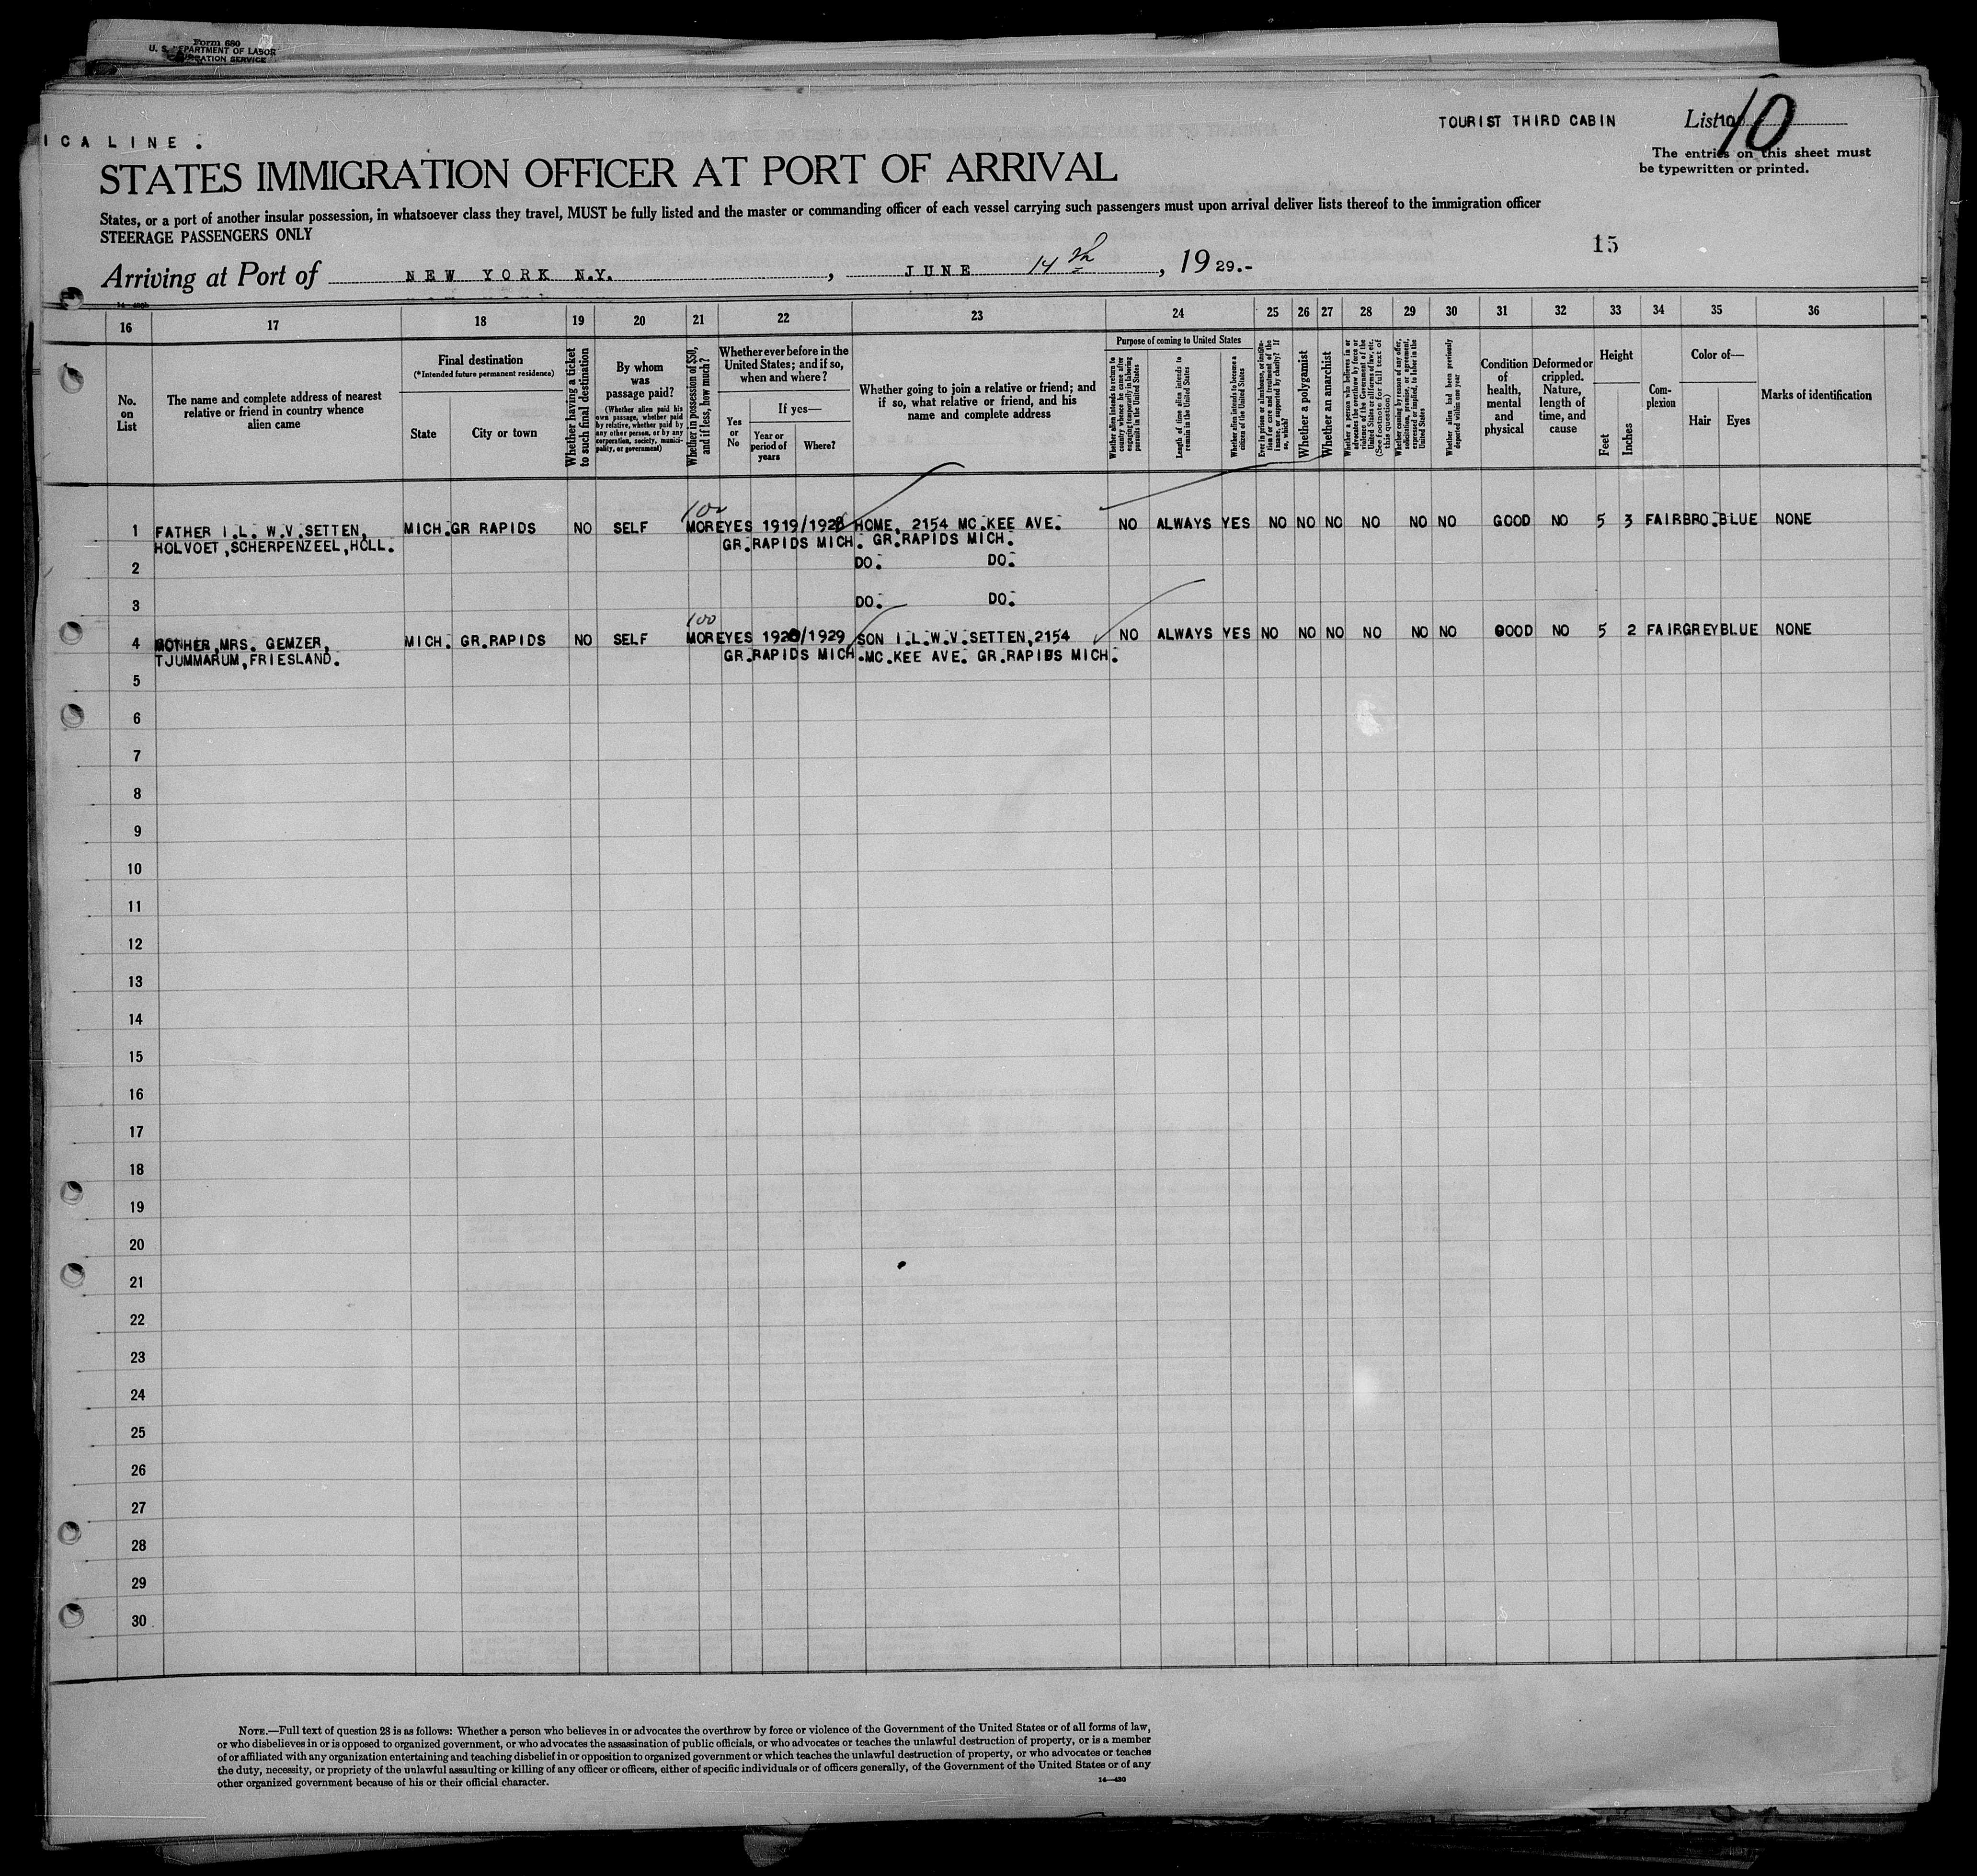 Form 680
U. S. DEPARTMENT OF LABOR
IMMIGRATION SERVICE
ICA LINE.
TOURIST THIRD CABIN
List 10
The entries on this sheet must
be typewritten or printed.
STATES IMMIGRATION OFFICER AT PORT OF ARRIVAL
States, or a port of another insular possession, in whatsoever class they travel, MUST be fully listed and the master or commanding officer of each vessel carrying such passengers must upon arrival deliver lists thereof to the immigration officer
STEERAGE PASSENGERS ONLY
15
Arriving at Port of NEW YORK N.Y., JUNE 14th, 1929.-
16 17 18 19 20 21 22 23 24 25 26 27 28 29 30 31 32 33 34 35 36
No.
on
List
The name and complete address of nearest
relative or friend in country whence
alien came
Final destination
(*Intended future permanent residence)
State
City or town
Whether having a ticket
to such final destination
By whom
was
passage paid?
(Whether alien paid his
own passage, whether paid
by relative, whether paid by
any other person, or by any
corporation, society, munici-
pality, or government)
Whether in possession of $50,
and if less, how much?
Whether ever before in the
United States; and if so,
when and where?
Yes
or
No
If yes—
Year or
period of
years
Where?
Whether going to join a relative or friend; and
if so, what relative or friend, and his
name and complete address
Purpose of coming to United States
Whether alien intends to return to
country whence he came after
engaging temporarily in laboring
pursuits in the United States
Length of time alien intends to
remain in the United States
Whether alien intends to become a
citizen of the United States
Ever in prison or almshouse, or institu-
tion for care and treatment of the
insane, or supported by charity? If
so, which?
Whether a polygamist
Whether an anarchist
Whether a person who believes in or
advocates the overthrow by force or
violence of the Government of the
United States or all forms of law, etc.
(See footnote for full text of
this question)
Whether coming by reason of any offer,
solicitation, promise, or agreement,
expressed or implied, to labor in the
United States
Whether alien had been previously
deported within one year
Condition
of
health,
mental
and
physical
Deformed or
crippled.
Nature,
length of
time, and
cause
Height
Feet
Inches
Com-
plexion
Color of—
Hair
Eyes
Marks of identification
100
1 FATHER I.L. W.V.SETTEN, MICH. GR RAPIDS NO SELF MORE YES 1919/1928 HOME, 2154 MC.KEE AVE. NO ALWAYS YES NO NO NO NO NO NO GOOD NO 5 3 FAIR BRO. BLUE NONE
HOLVOET,SCHERPENZEEL,HOLL. GR.RAPIDS MICH. GR.RAPIDS MICH.
2 DO. DO.
3 DO. DO.
100
4 MOTHER,MRS. GEMZER, MICH. GR.RAPIDS NO SELF MORE YES 1928/1929 SON I.L.W.V.SETTEN,2154 NO ALWAYS YES NO NO NO NO NO NO GOOD NO 5 2 FAIR GREY BLUE NONE
TJUMMARUM,FRIESLAND. GR.RAPIDS MICH. MC.KEE AVE. GR.RAPIDS MICH.
5
6
7
8
9
10
11
12
13
14
15
16
17
18
19
20
21
22
23
24
25
26
27
28
29
30
NOTE.—Full text of question 28 is as follows: Whether a person who believes in or advocates the overthrow by force or violence of the Government of the United States or of all forms of law,
or who disbelieves in or is opposed to organized government, or who advocates the assassination of public officials, or who advocates or teaches the unlawful destruction of property, or is a member
of or affiliated with any organization entertaining and teaching disbelief in or opposition to organized government or which teaches the unlawful destruction of property, or who advocates or teaches
the duty, necessity, or propriety of the unlawful assaulting or killing of any officer or officers, either of specific individuals or of officers generally, of the Government of the United States or of any
other organized government because of his or their official character.
14—430